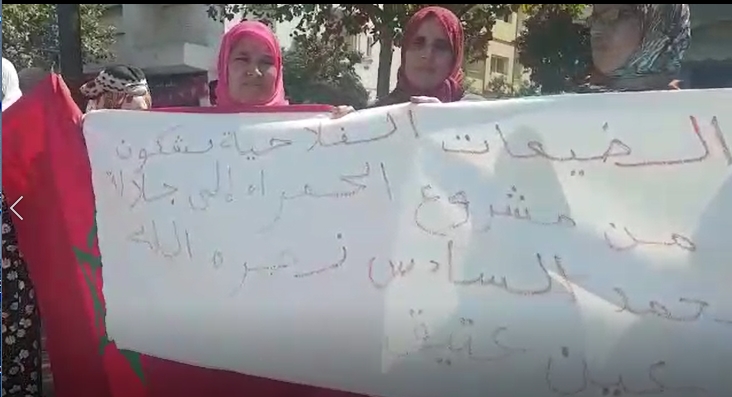 الضيعات الفلاحية يشكون
من مشروع الحمراء إلى جلالة
محمد السادس نصره الله
عين عتيق